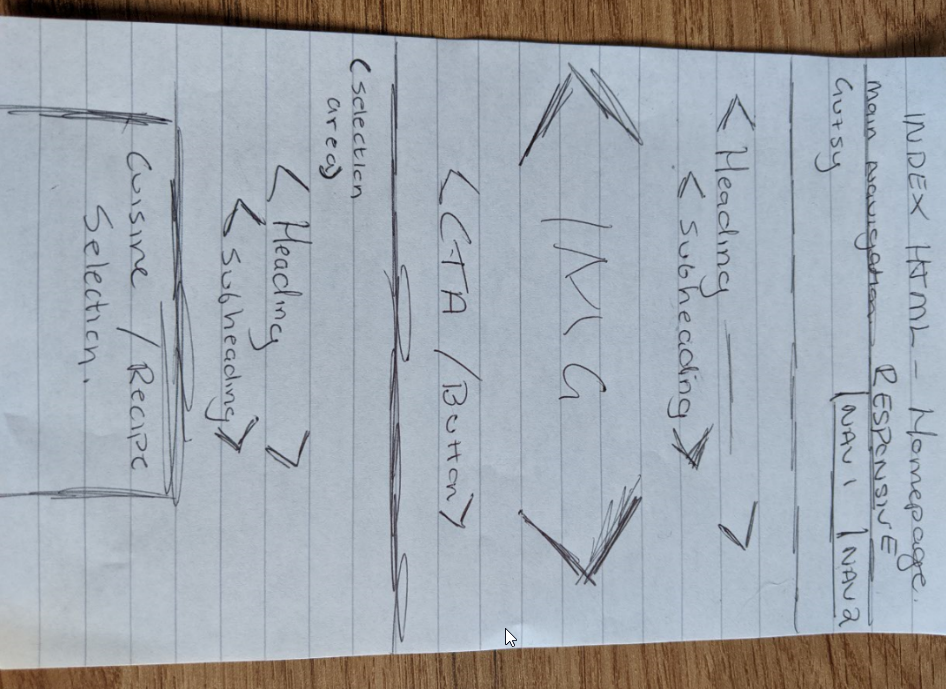 INDEX HTML - Homepage.
RESPONSIVE
Main navigation
Gutsy
NAV 1 NAV 2
< Heading >
< Subheading >
< IMG >
< CTA / Button >
(Selection
area)
< Heading >
< Subheading >
Cuisine / Recipe
Selection.